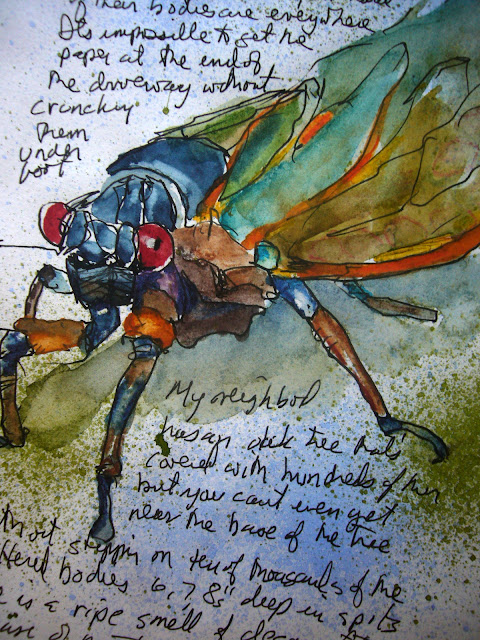 of their bodies are everywhere
It's impossible to get the
paper at the end of
the driveway without
crunching
them
under
foot
My neighbor
has an old tree that's
covered with hundreds of them
but you cant even get
near the base of the tree
without steppin on ten of thousands of the
bodies 6, 7, 8" deep in spots
is a ripe smell of